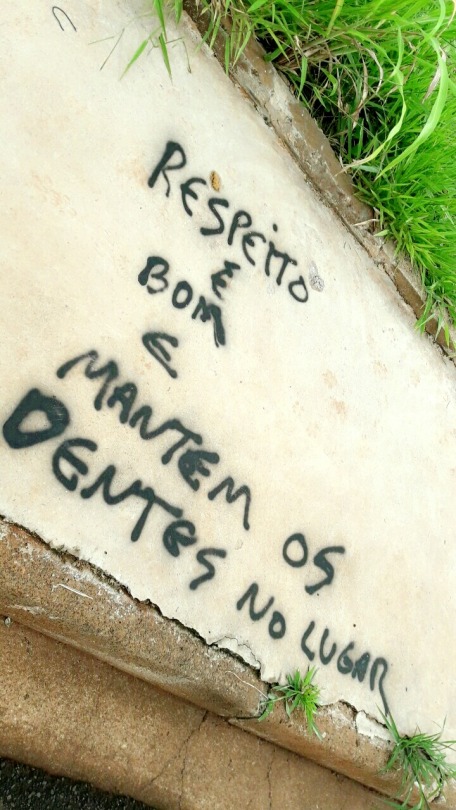 RESPEITO
É
BOM
E
MANTEM OS
DENTES NO LUGAR